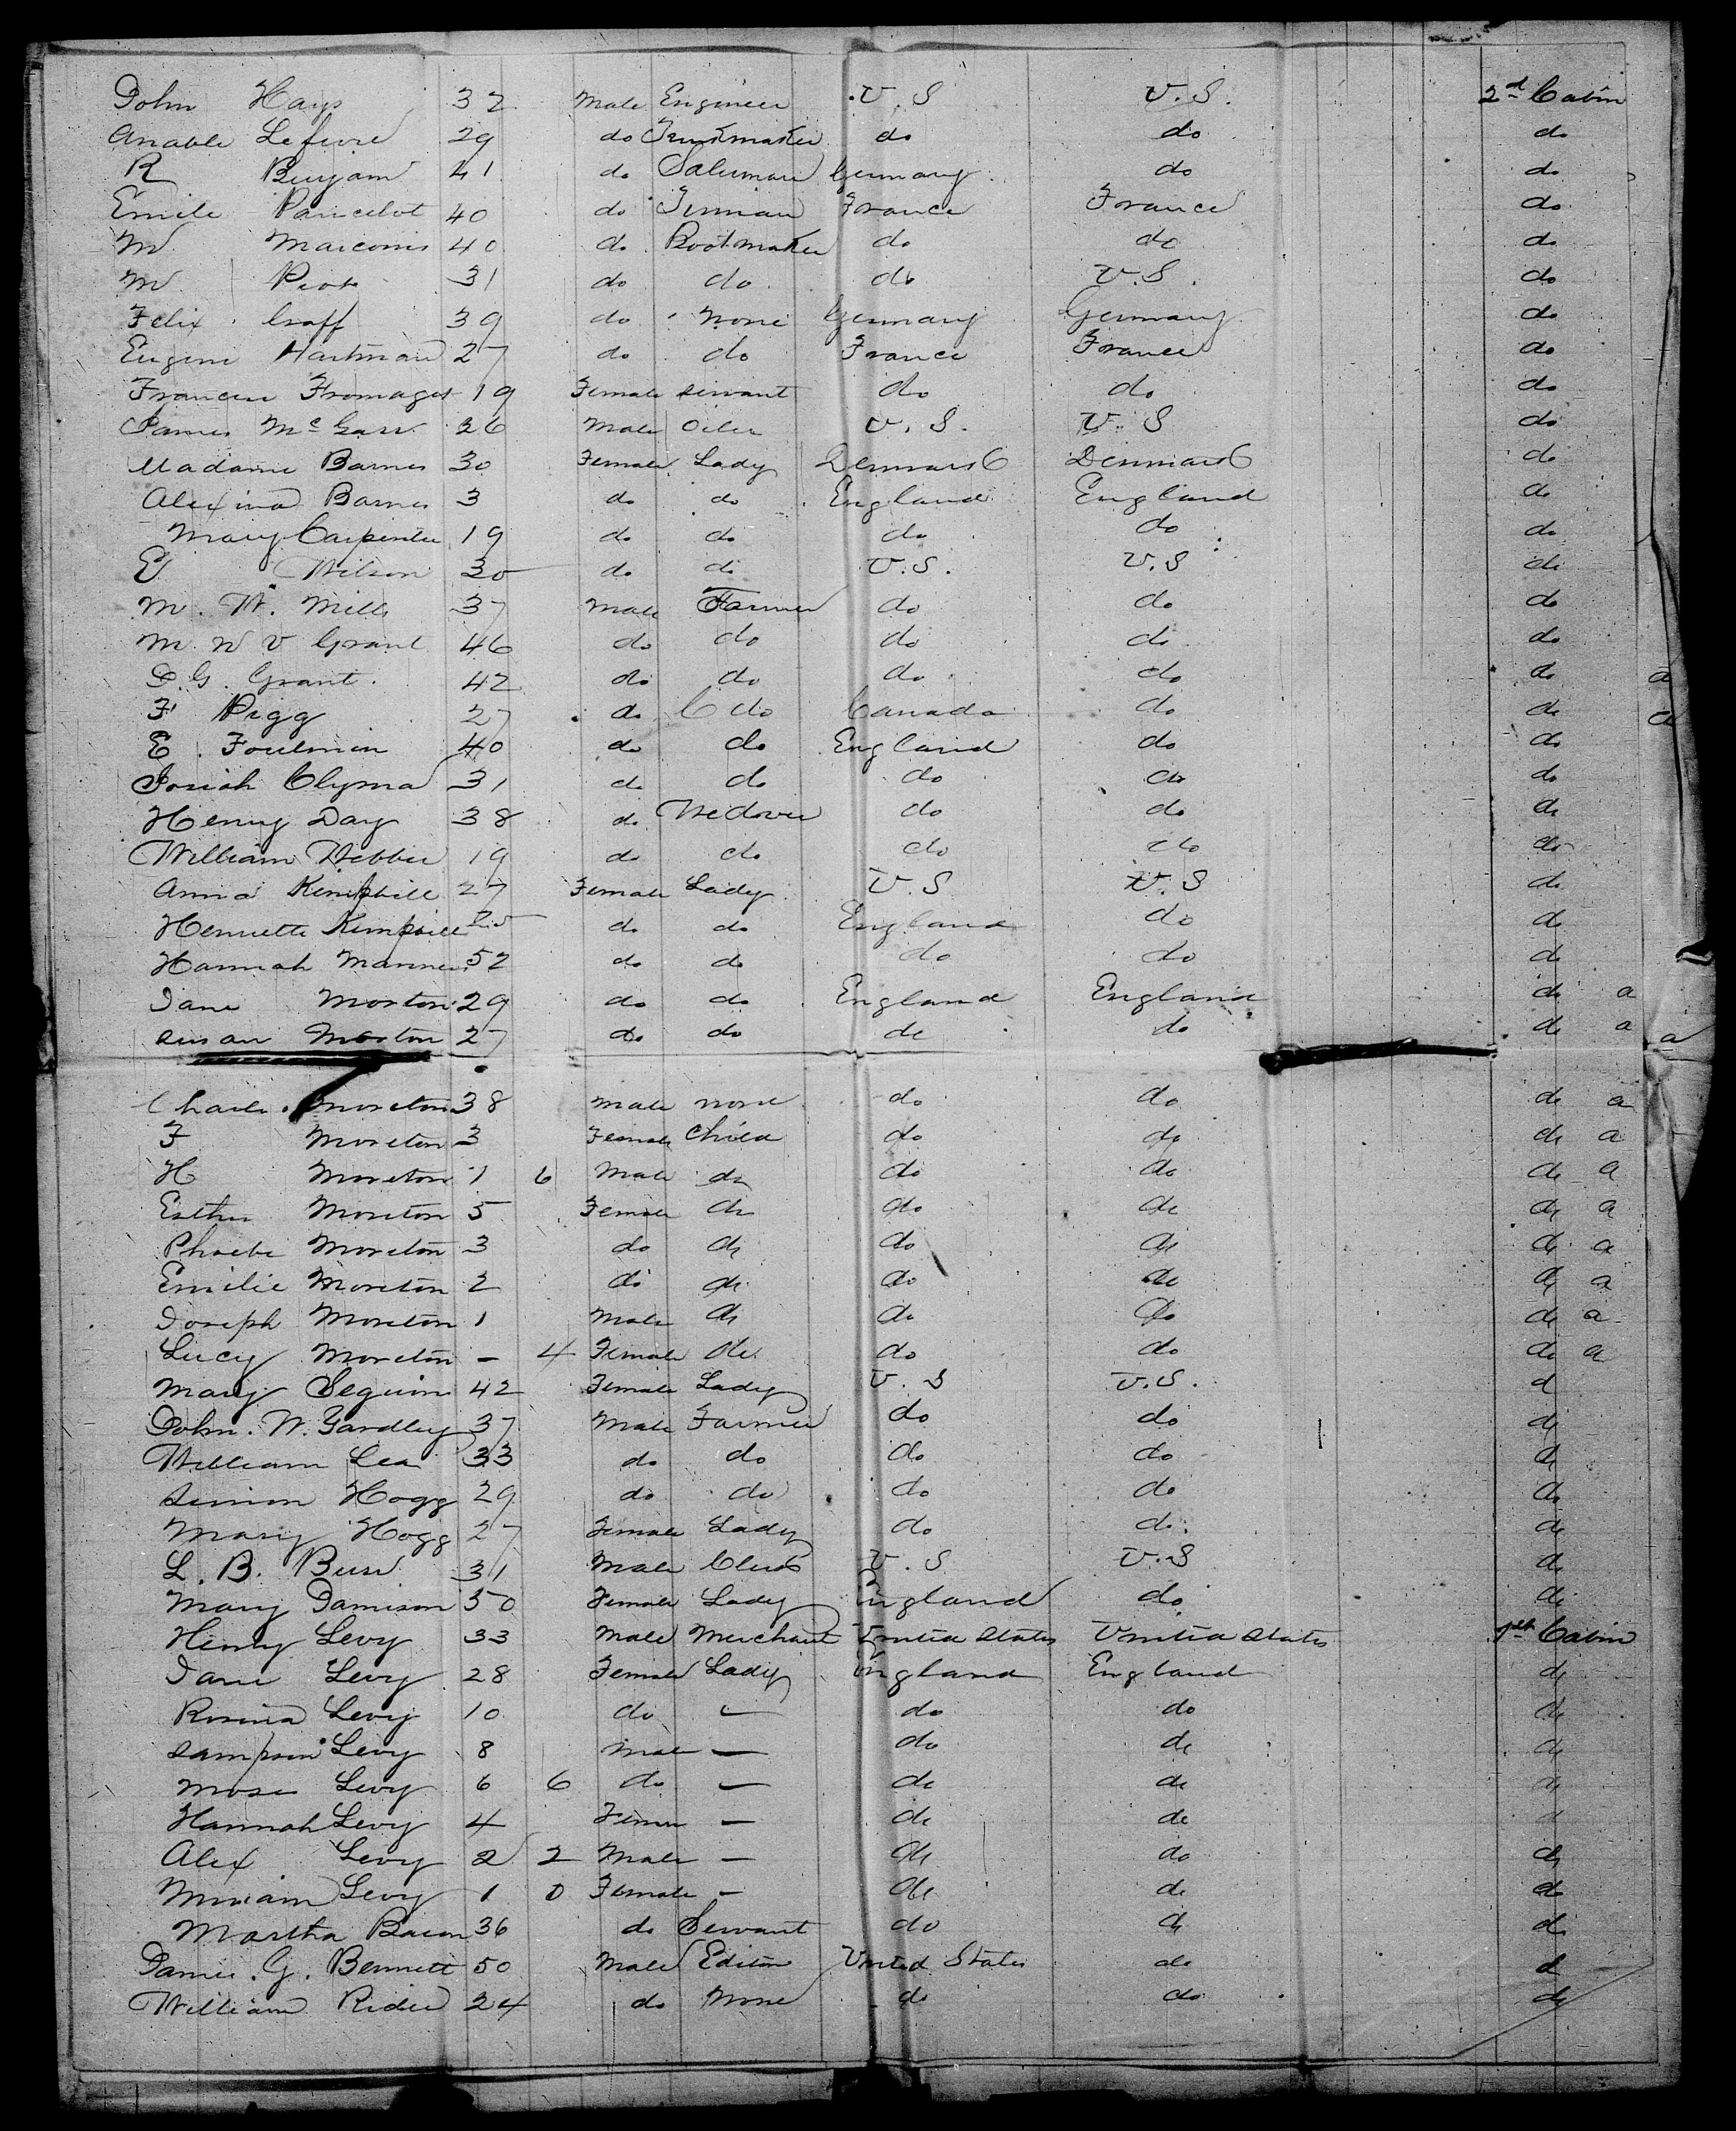 John Hays 37 Male Engineer U.S U.S. 2nd Cabin
Anable Lefevre 29 do Trunkmaker do do do
R Benjam 41 do Salesman Germany do do
Emile Pancelot 40 do France France do
M Marconis 40 do Bootmaker do do do
M Piot 31 do do do U.S. do
Felix Graff 39 do None Germany Germany do
Eugene Hartman 27 do do France France do
Francen Fromaget 19 Female servant do do do
James McGarr 26 Male Oiler U.S. U.S do
Madame Barnes 30 Female Lady Denmark Denmark do
Alexina Barnes 3 do do England England do
Mary Carpenter 19 do do do do do
E Wilson 30 do do U.S. U.S do
M. W. Mills 37 Male Farmer do do do
M W V Grant 46 do do do do do
D. G. Grant 42 do do do do do a
F Pigg 27 do do Canada do do a
E. Foulmin 40 do do England do do
Josiah Clyma 31 do do do do do
Henry Day 38 do do do do
William Webber 19 do do do do do
Anna Kimphill 27 Female Lady U.S U.S do
Henriette Kimphill do do England do do
Hannah Manner 52 do do do do do
Jane Morton 29 do do England England do a
Susan Morton 27 do do do do do a a
Charles Moreton 38 Male none do do do a
F Moreton 3 Female Child do do do a
H Moreton 1 6 Male do do do do a
Esther Moreton 5 Female do do do do a
Phoebe Moreton 3 do do do do do a
Emilie Moreton 2 do do do do do a
Joseph Moreton 1 Male do do do do a
Lucy Moreton - 4 Female do do do do a
Mary Seguin 42 Female Lady U.S U.S. do
John. W. Yardley 37 Male Farmer do do do
William Lea 33 do do do do do
Simon Hogg 29 do do do do do
Mary Hogg 27 Female Lady do do do
L. B. 31 Male Clerk U.S U.S do
Mary Jamison 50 Female Lady England do do
Henry Levy 33 Male Merchant United States United States 1st Cabin
Jane Levy 28 Female Lady England England do
Rosina Levy 10 do — do do do
Sampson Levy 8 Male — do do do
Moses Levy 6 6 do — do do do
Hannah Levy 4 Female — do do do
Alex Levy 2 2 Male — do do do
Miriam Levy 1 0 Female — do do do
Martha Bacon 36 do Servant do do do
James. G. Bennett 50 Male Editor United States do do
William Rider 24 do None do do do